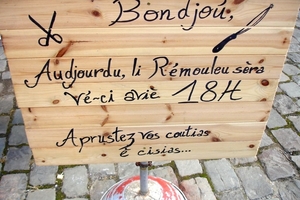 Bondjoû,
Audjourdu, li Rémouleu sèra
vé-ci avië 18H
Aprustez vos coutias
é cisias...